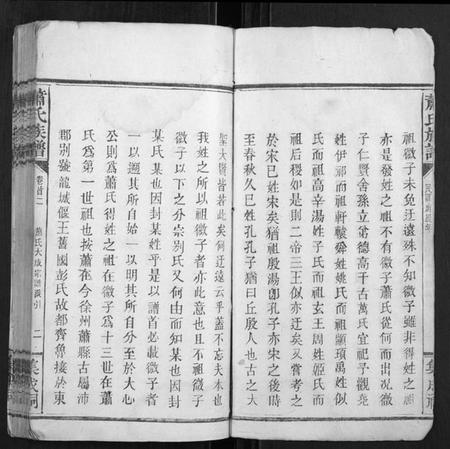 蕭氏族譜
祖微子未免迂遠殊不知微子雖非得姓之祖
亦是發姓之祖不有微子蕭氏從何而出況微
子仁賢舍孫立弟德高千古萬氏宜祀乎觀堯
姓伊祁而祖軒轅舜姓姚氏而祖顓頊禹姓姒
氏而祖高辛湯姓子氏而祖玄王周姓姬氏而
祖后稷如是則二帝三王似亦迂矣又嘗考之
於宋已姓宋矣猶祖殷湯卽孔子亦宋之後時
至春秋久已姓孔孔子猶曰丘殷人也古之大
聖大賢皆若此矣何迂遠云乎蓋不忘夫本也
我姓之所以祖微子者亦此意也且不祖微子
微子以下之分宗別氏又何由而知某也因封
某氏某也因封某姓乎是以譜首必載微子者
一以遡其所自始一以明其所自分至於大心
公則爲蕭氏得姓之祖在微子爲十三世在蕭
氏爲第一世祖也按蕭在今徐州蕭縣古屬沛
郡別號龍城偃王舊國彭氏故都齊魯接於東
蕭氏族譜
卷首二
蕭氏大成宗譜源引
二
集成祠